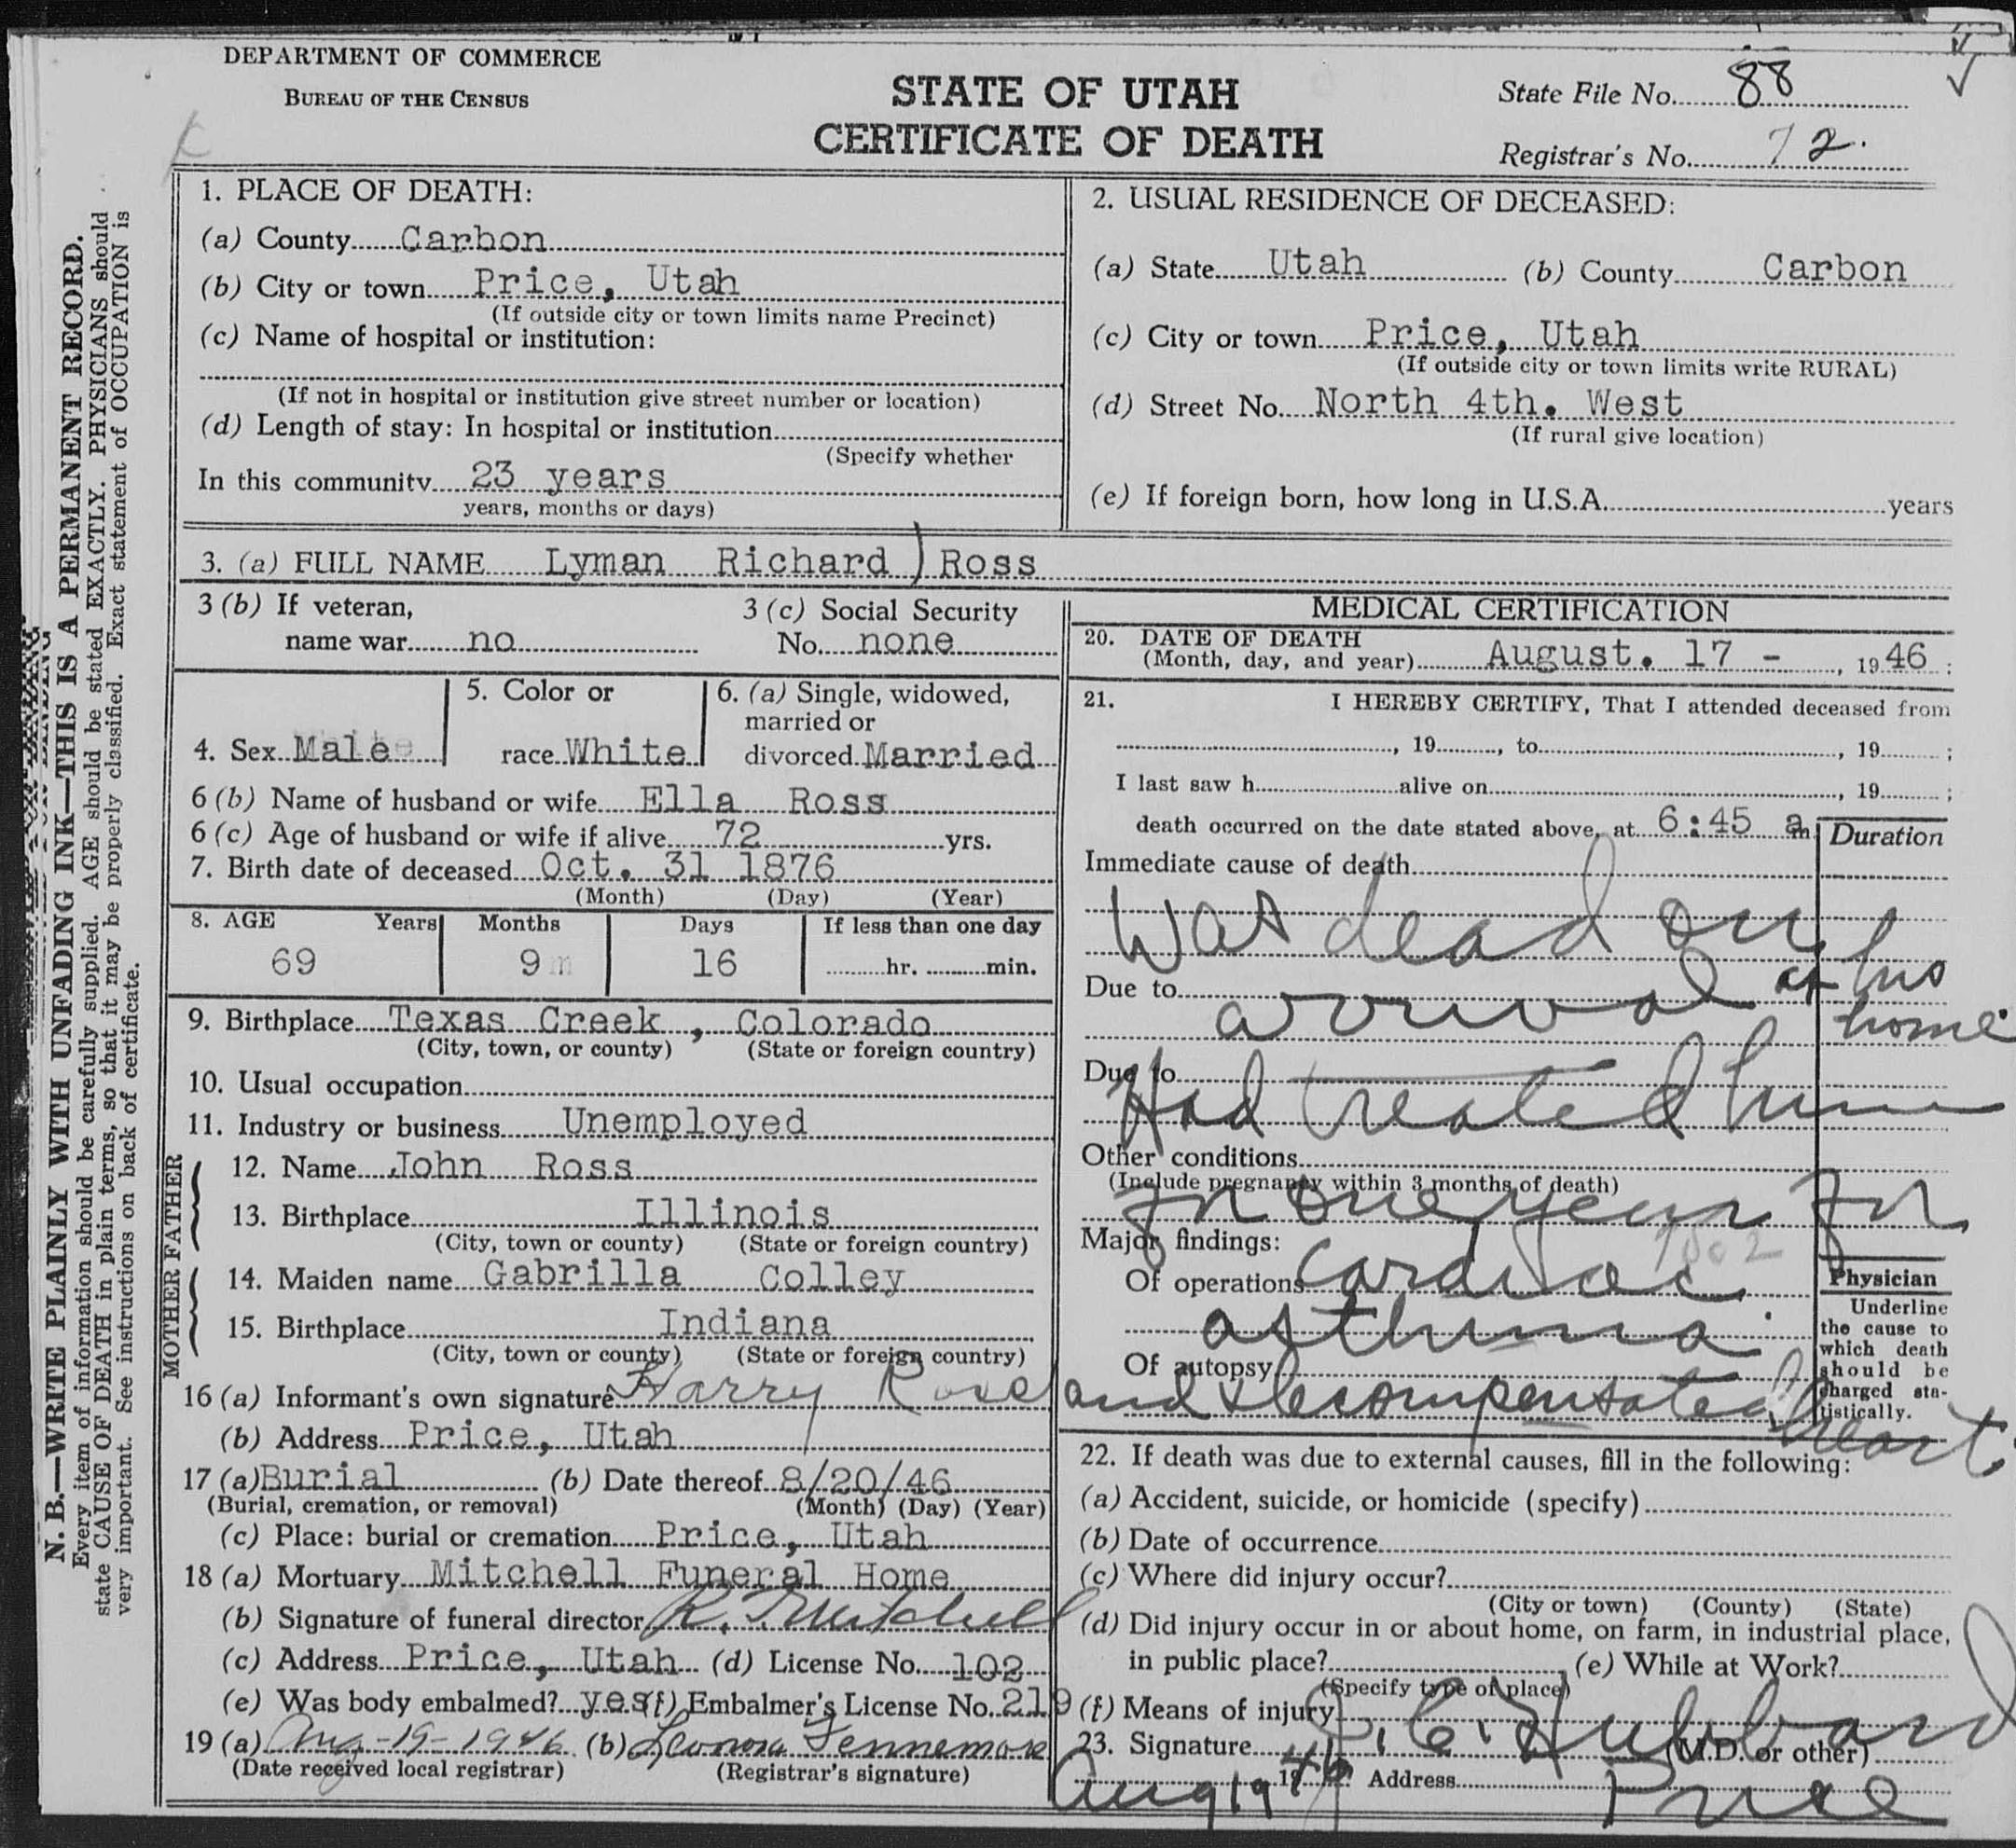 DEPARTMENT OF COMMERCE
BUREAU OF THE CENSUS
STATE OF UTAH
CERTIFICATE OF DEATH
State File No. 88
Registrar's No. 72.
N. B.—WRITE PLAINLY WITH UNFADING INK—THIS IS A PERMANENT RECORD.
Every item of information should be carefully supplied. AGE should be stated EXACTLY. PHYSICIANS should
state CAUSE OF DEATH in plain terms, so that it may be properly classified. Exact statement of OCCUPATION is
very important. See instructions on back of certificate.
1. PLACE OF DEATH:
(a) County Carbon
(b) City or town Price, Utah
(If outside city or town limits name Precinct)
(c) Name of hospital or institution:
(If not in hospital or institution give street number or location)
(d) Length of stay: In hospital or institution
(Specify whether
In this community 23 years
years, months or days)
2. USUAL RESIDENCE OF DECEASED:
(a) State Utah (b) County Carbon
(c) City or town Price, Utah
(If outside city or town limits write RURAL)
(d) Street No. North 4th. West
(If rural give location)
(e) If foreign born, how long in U.S.A. years
3. (a) FULL NAME Lyman Richard ) Ross
3 (b) If veteran,
name war no
3 (c) Social Security
No. none
4. Sex Male
5. Color or
race White
6. (a) Single, widowed,
married or
divorced Married
6 (b) Name of husband or wife Ella Ross
6 (c) Age of husband or wife if alive 72 yrs.
7. Birth date of deceased Oct. 31 1876
(Month) (Day) (Year)
8. AGE Years Months Days If less than one day
69 9 m 16 hr. min.
9. Birthplace Texas Creek , Colorado
(City, town, or county) (State or foreign country)
10. Usual occupation
11. Industry or business Unemployed
FATHER
12. Name John Ross
13. Birthplace Illinois
(City, town or county) (State or foreign country)
MOTHER
14. Maiden name Gabrilla Colley
15. Birthplace Indiana
(City, town or county) (State or foreign country)
16 (a) Informant's own signature Harry Ross
(b) Address Price, Utah
17 (a) Burial (b) Date thereof 8/20/46
(Burial, cremation, or removal) (Month) (Day) (Year)
(c) Place: burial or cremation Price, Utah
18 (a) Mortuary Mitchell Funeral Home
(b) Signature of funeral director R. T. Mitchell
(c) Address Price, Utah (d) License No. 102
(e) Was body embalmed? yes (f) Embalmer's License No. 219
19 (a) Aug-19-1946 (b) Leonora Fennemore
(Date received local registrar) (Registrar's signature)
MEDICAL CERTIFICATION
20. DATE OF DEATH
(Month, day, and year) August. 17 - , 1946 ;
21. I HEREBY CERTIFY, That I attended deceased from
, 19 , to , 19 ;
I last saw h alive on , 19 ;
death occurred on the date stated above, at 6:45 a m.
Duration
Immediate cause of death
Was dead on
Due to
arrival at his
home.
Due to
Had treated him
Other conditions
(Include pregnancy within 3 months of death)
for one year for
Major findings:
Of operations cardiac
asthma
Of autopsy
and decompensated heart
Physician
Underline
the cause to
which death
should be
charged sta-
tistically.
22. If death was due to external causes, fill in the following:
(a) Accident, suicide, or homicide (specify)
(b) Date of occurrence
(c) Where did injury occur?
(City or town) (County) (State)
(d) Did injury occur in or about home, on farm, in industrial place,
in public place? (e) While at Work?
(Specify type of place)
(f) Means of injury
23. Signature J. C. Hubbard (M.D. or other)
Aug 19 1946 Address Price